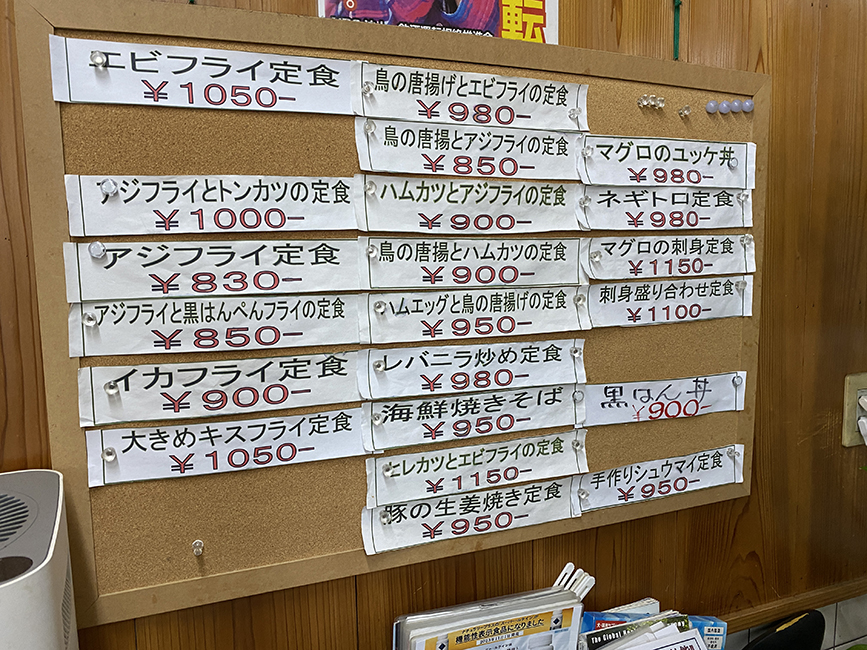 転
エビフライ定食
￥1050−
アジフライとトンカツの定食
￥1000−
アジフライ定食
￥830−
アジフライと黒はんぺんフライの定食
￥850−
イカフライ定食
￥900−
大きめキスフライ定食
￥1050−
鳥の唐揚げとエビフライの定食
￥980−
鳥の唐揚とアジフライの定食
￥850−
ハムカツとアジフライの定食
￥900−
鳥の唐揚とハムカツの定食
￥900−
ハムエッグと鳥の唐揚げの定食
￥950−
レバニラ炒め定食
￥980−
海鮮焼きそば
￥950−
ヒレカツとエビフライの定食
￥1150−
豚の生姜焼き定食
￥950−
マグロのユッケ丼
￥980−
ネギトロ定食
￥980−
マグロの刺身定食
￥1150−
刺身盛り合わせ定食
￥1100−
黒はん丼
￥900−
手作りシュウマイ定食
￥950−
機能性表示食品になりました
The Global